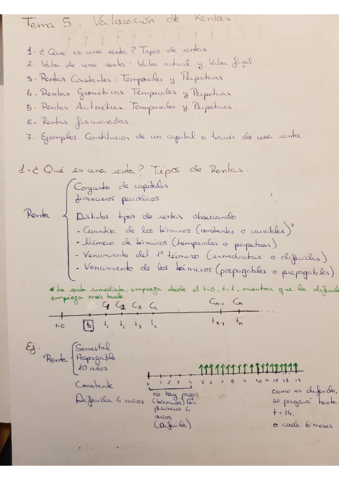 Tema 5: Valoración de Rentas.
1- ¿Qué es una renta? Tipos de rentas
2- Valor de una renta: Valor actual y Valor final.
3- Rentas Constantes: Temporales y Perpetuas
4- Rentas Geométricas: Temporales y Perpetuas.
5- Rentas Aritméticas: Temporales y Perpetuas.
6- Rentas fraccionadas.
7- Ejemplos. Constitución de un capital a través de una renta.
1- ¿Qué es una renta? Tipos de Rentas.
Renta
Conjunto de capitales
financieros periódicos
Distintos tipos de rentas observando
- Cuantía de los términos (constantes o variables)
- Número de términos (temporales o perpetuas)
- Vencimiento del 1º término (inmediatas o diferidas)
- Vencimiento de los términos (pospagables o prepagables)
*La renta inmediata, empieza desde el t=0, t=1, mientras que la diferida
empieza más tarde.
C1 C2 C3 Cn-1 Cn
t=0 t0 t1 t2 tn-1 tn
Ej:
Renta
Semestral
Pospagable
10 años
Constante
Diferida 4 años
0 1 2 3 4 5 6 7 8 9 10 11 12 13 14
no hay pagos
(términos) los
primeros 4
años
(Diferida)
como es diferida,
se pagará hasta
t=14.
o cada 6 meses